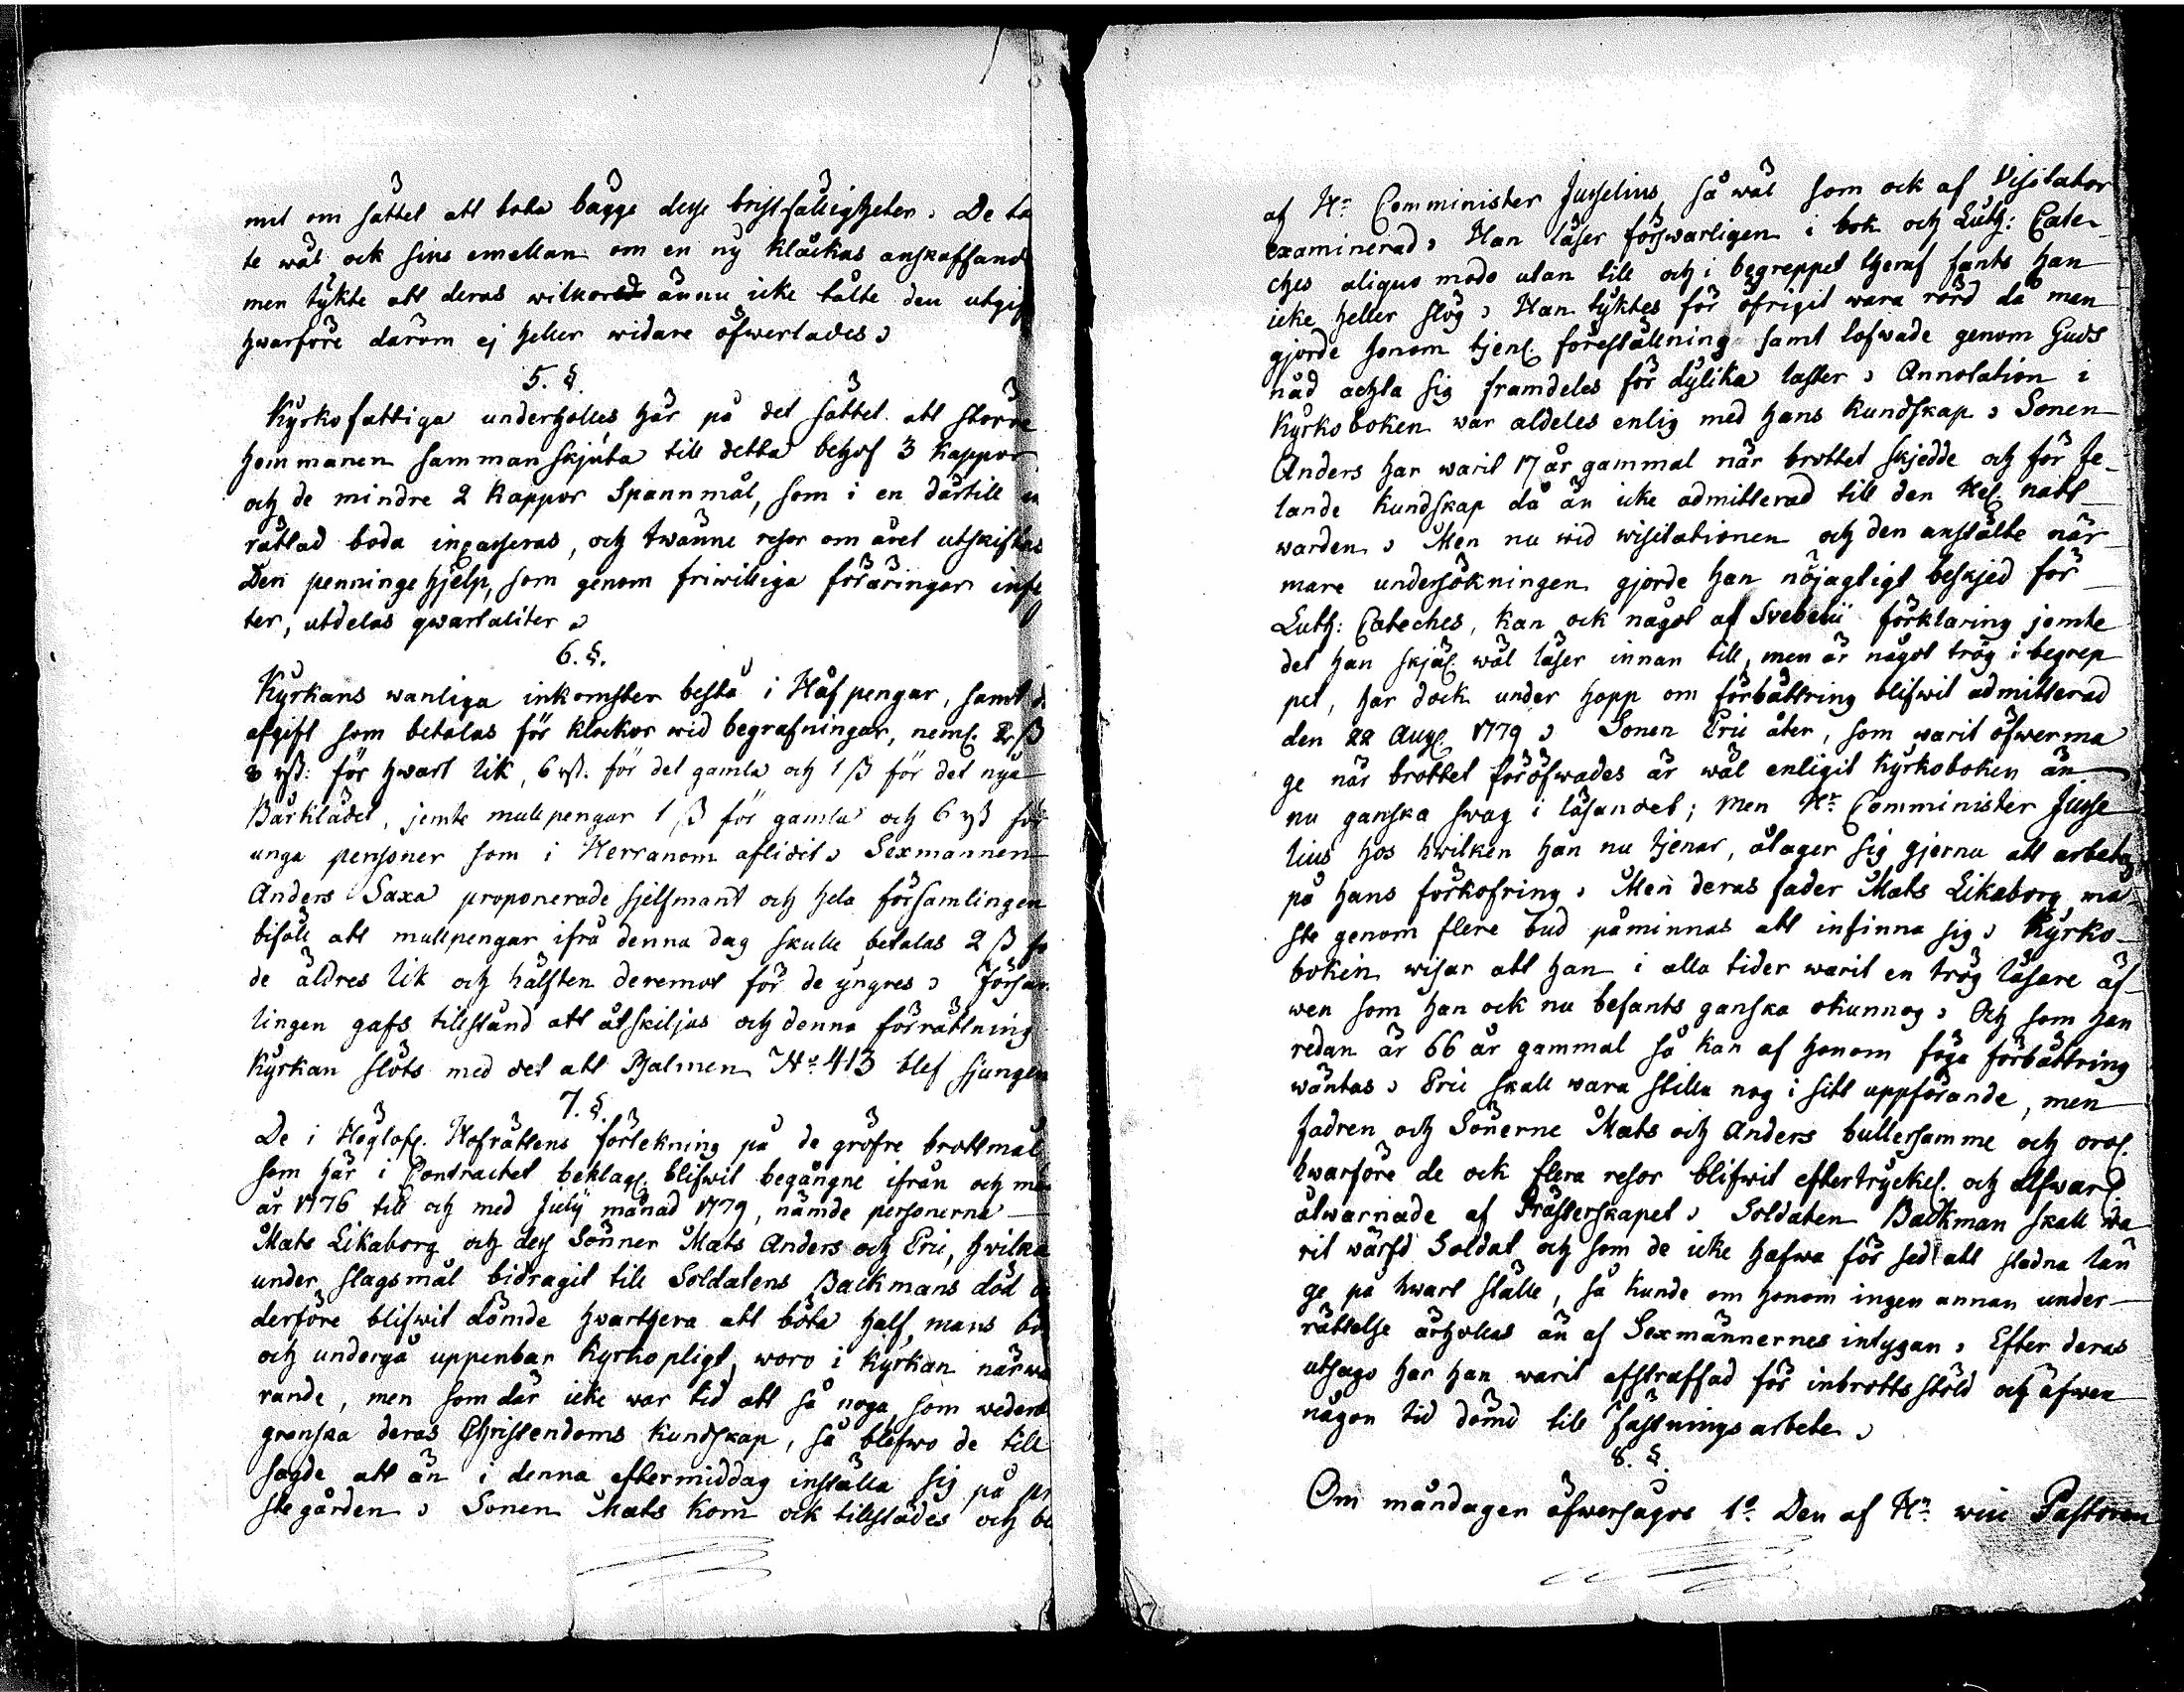 mit om sättet att bota bägge desse bristfälligheter. De ta
te wäl ock sins emellan om en ny klåckas anskaffand
men tykte att deras wilkor ännu icke tålte den utgif
hwarföre därom ej heller widare öfwerlades.
5. §.
Kyrkofattiga underholles här på det sättet att större
hemmanen sammanskjuta till detta behof 3 kappor
och de mindre 2 kappor Spannmål, som i en därtill in
rättad boda incasseras, och twänne resor om året utskiftas
Den penninge hjelp, som genom friwilliga föräringar infl
ter, utdelas qwartaliter.
6. §.
Kyrkans wanliga inkomster bestå i Håfpengar, samt d
afgift som betalas för klockor wid begrafningar, neml.
8 rst: för hwart lik, 6 rst. för det gamla och 1 ß för det nya
Bårklädet, jemte mullpengar 1 ß för gamla och 6 rst för
unga personer som i Herranom aflidit. Sexmannen
Anders Saxa proponerade sjelfmant och hela församlingen
biföll att mullpengar ifrå denna dag skulle betalas 2 ß fö
de äldres lik och hälften deremot för de yngres. Försam
lingen gafs tillstånd att åtskiljas och denna förrättning
kyrkan slöts med det att Psalmen No. 413 blef sjungen
7. §.
De i Höglofl. Hofrättens förtekning på de gröfre brottmål
som här i Contractet beklagl. blifwit begångne ifrån och med
år 1776 till och med July månad 1779, nämde personerna
Mats Likaborg och dess Sönner Mats Anders och Eric, hwilka
under slagsmål bidragit till Soldatens Backmans död o
derföre blifwit dömde hwarthera att böta half mans bo
och undergå uppenbar kyrkopligt, woro i kyrkan närwa
rande, men som där icke war tid att så noga som wederb
granska deras Christendoms kundskap, så blefwo de till
sagde att än i denna eftermiddag inställa sig på pr
stegården. Sonen Mats kom ock tillstädes och bl
af Hr Comminister Jusselius så wäl som ock af Visitator
examinerad. Han läser förswarligen i bok och Luth: Cate-
ches aliquo modo utan till och i begreppet theraf fants han
icke heller slög. Han tyktes för öfrigit wara rörd då men
gjorde honom tjenl. föreställning samt lofwade genom Guds
nåd achta sig framdeles för dylika laster. Annotation i
Kyrkoboken war aldeles enlig med hans kundskap. Sonen
Anders har warit 17 år gammal när brottet skjedde och för fe-
lande kundskap då än icke admitterad till den Hel. natt
warden. Men nu wid wisitationen och den anstälte när
mare undersökningen gjorde han nöjagtigt beskjed för
Luth: Cateches, kan ock något af Svebelii förklaring jemte
det han skjäl. wäl läser innan till, men är något trög i begrep
pet, har dock under hopp om förbättring blifwit admitterad
den 22 Aug. 1779. Sonen Eric åter, som warit öfwerma
ge när brottet föröfwades är wäl enligit Kyrkoboken än
nu ganska swag i läsandet; men Hr Comminister Jusse
lius hos hwilken han nu tjenar, åtager sig gjerna att arbeta
på hans förkofring. Men deras fader Mats Likaborg må
ste genom flere bud påminnas att infinna sig. Kyrko-
boken wisar att han i alla tider warit en trög läsare äf-
wen som han ock nu befants ganska okunnog. Och som han
redan är 66 år gammal så kan af honom föga förbättring
wäntas. Eric skall wara stilla nog i sitt uppförande, men
fadren och Sönerne Mats och Anders bullersamme och orol.
hwarföre de ock flera resor blifwit eftertryckel. och alfwarl.
åtwarnade af Prästerskapet. Soldaten Backman skall wa
rit wärfd Soldat och som de icke hafwa för sed att stadna län
ge på hwart ställe, så kunde om honom ingen annan under-
rättelse ärhollas än af Sexmännernes intygan. Efter deras
utsago har han warit afstraffad för inbrottsstöld och äfwen
någon tid dömd till fästningsarbete.
8. §.
Om måndagen öfwersågos 1o. Den af Hr wice Pastoren